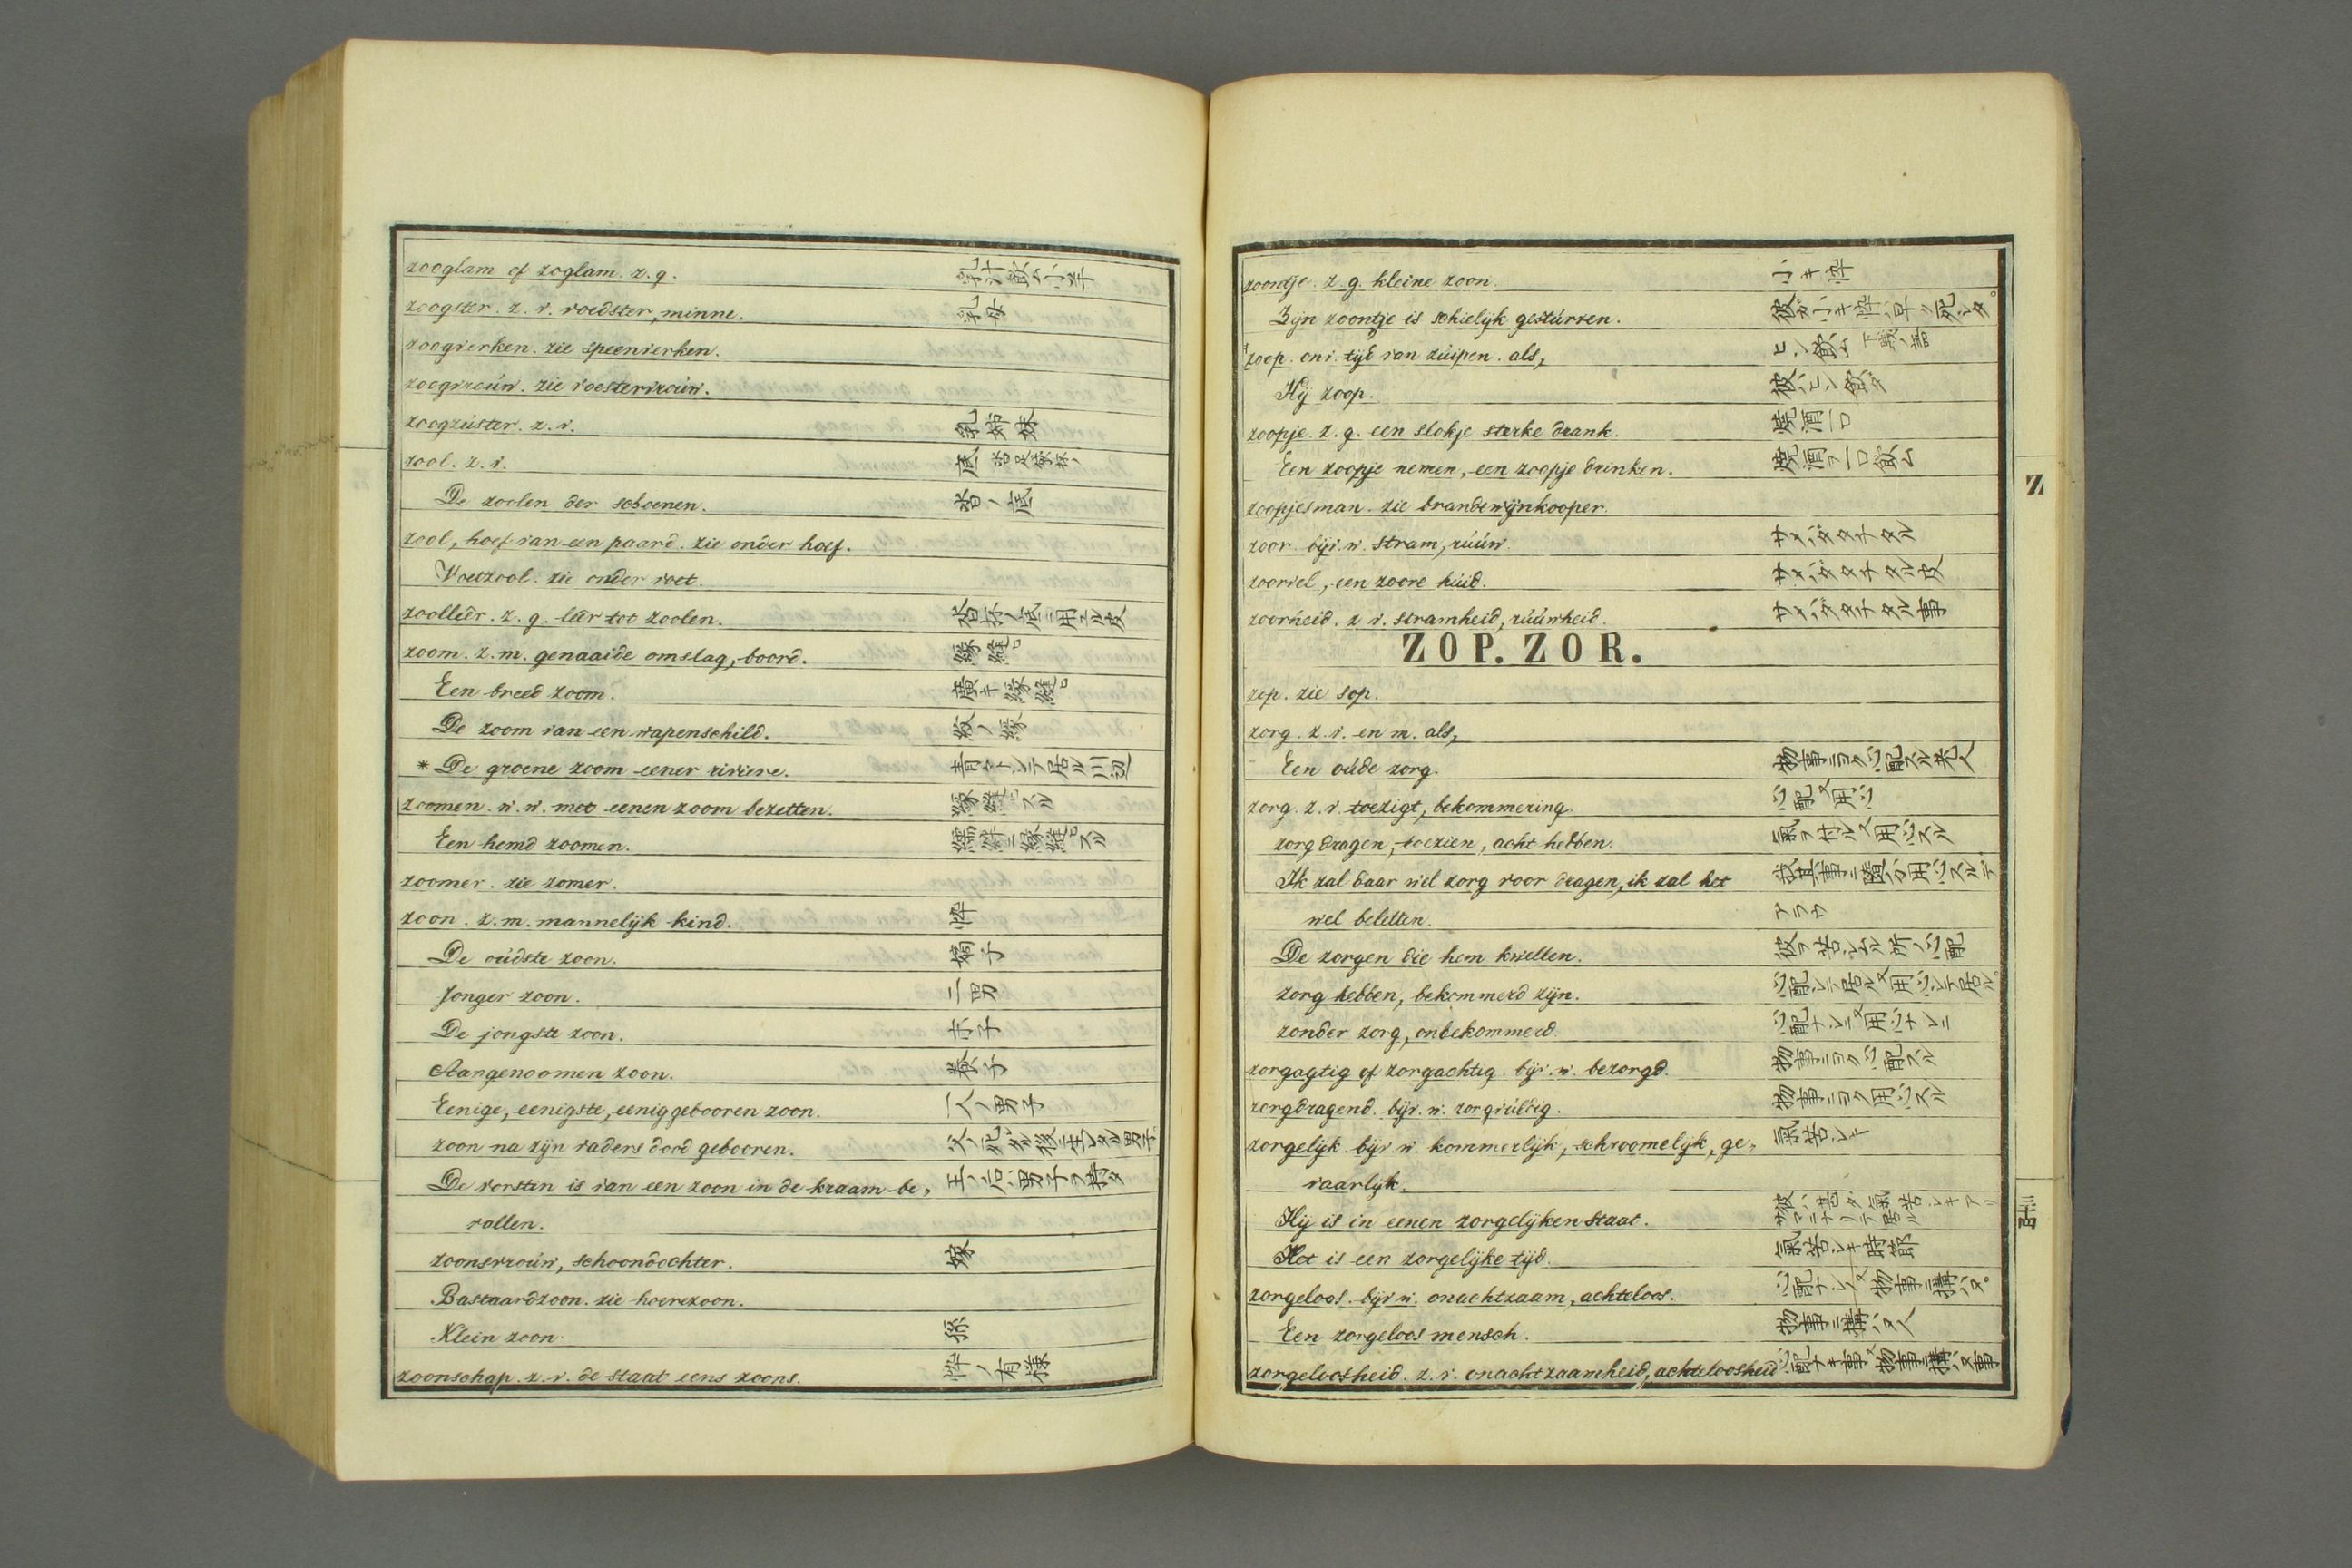 zooglam of zoglam. z. g. 乳汁飲ム小羊
zoogster. z. v. voedster, minne. 乳母
zoogverken. zie speenverken.
zoogvroúw. zie voestervroúw.
zoogzúster. z. v. 乳姉妹
zool. z. v. 底 沓足袋抔ノ
De zoolen der schoenen. 沓ノ底
zool, hoef van een paard. zie onder hoef.
Voetzool. zie onder voet.
zoolleêr. z. g. leêr tot zoolen. 沓抔ノ底ニ用ユル皮
zoom. z. m. genaaide omslag, boord. 縁縫
Een breed zoom. 廣キ縁縫
De zoom van een wapenschild. 紋ノ縁
* De groene zoom eener riviere.
zoomen. w. w. met eenen zoom bezetten. 縁縫スル
Een hemd zoomen. 襦袢ニ縁縫スル
zoomer. zie zomer.
zoon. z. m. mannelijk kind. 悴
De oúdste zoon. 嫡子
Jonger zoon. 二男
De jongste zoon. 末子
Aangenoomen zoon. 養子
Eenige, eenigste, eeniggebooren zoon. 一人ノ男子
zoon na zijn vaders dood gebooren.
De vorstin is van een zoon in de kraam be,
vallen.
zoonsvroúw, schoondochter. 嫁
Bastaardzoon. zie hoerezoon.
Klein zoon. 孫
zoonschap. z. v. de staat eens zoons. 悴ノ有様
zoontje. z. g. kleine zoon. 小キ悴
Zijn zoontje is schielijk gestúrven.
zoop. onv. tijd van zúipen. als,
Hij zoop.
zoopje. z. g. een slokje sterke drank. 燒酒一口
Een zoopje nemen, een zoopje drinken. 燒酒ヲ一口飲ム
zoopjesman. zie brandewijnkooper.
zoor. bijv. w. stram, rúúw.
zoorvel, een zoore húid.
zoorheid. z. v. stramheid, rúúwheid.
ZOP. ZOR.
zop. zie sop.
zorg. z. v. en m. als,
Een oúde zorg. 物事ニヨク心配スル老人
zorg. z. v. toezigt, bekommering. 心配又用心
zorg dragen, toezien, acht hebben. 氣ヲ付ル又用心スル
Ik zal daar wel zorg voor dragen, ik zal het
wel beletten. アラウ
De zorgen die hem kwellen. 彼ヲ苦シムル所ノ心配
zorg hebben, bekommerd zijn. 心配シテ居ル又用心シテ居ル
zonder zorg, onbekommerd. 心配ナシニ又用心ナシニ
zorgagtig of zorgachtig. bijv. w. bezorgd. 物事ニヨク心配スル
zorgdragend. bijv. w. zorgvúldig. 物事ニヨク用心スル
zorgelijk. bijv. w. kommerlijk, schroomelijk, ge,
vaarlijk. 氣苦シキ
Hij is in eenen zorgelijken staat.
Het is een zorgelijke tijd. 氣苦シキ時節
zorgeloos. bijv. w. onachtzaam, achteloos. 心配ナシ又物事ニ構ハヌ
Een zorgeloos mensch. 物事ニ構ハヌ人
zorgeloosheid. z. v. onachtzaamheid, achteloosheid. 心配ナキ事又物事ニ構ハヌ事
Z